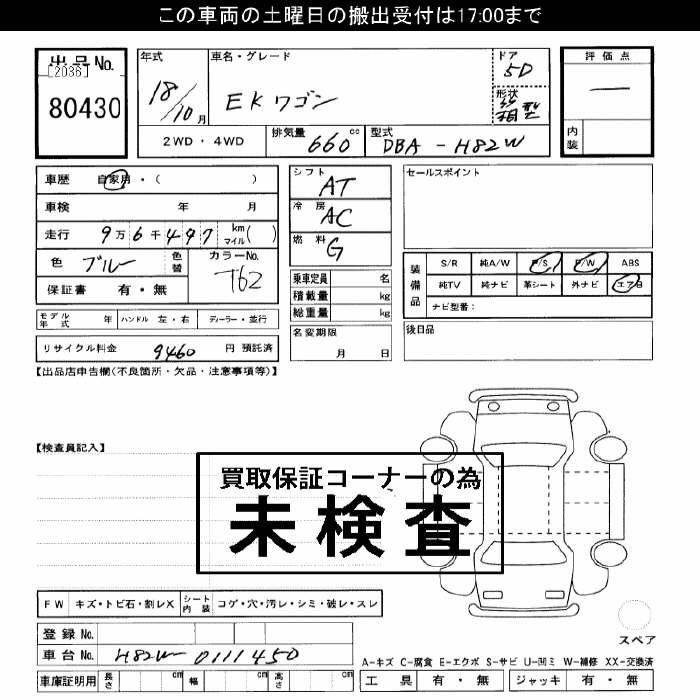 この車両の土曜日の搬出受付は17:00まで
出品No.
[2036]
80430
年式
18/10月
車名・グレード
EKワゴン
ドア
5D
形状
箱型
2WD・4WD
排気量
660cc
型式
DBA-H82W
評価点
―
内装
車歴 自家用・( )
車検 年 月
走行 9万6千497 km マイル( )
色 ブルー
色替
カラーNo.
T62
保証書 有・無
モデル年式 年 ハンドル 左・右 ディーラー・並行
リサイクル料金 9460 円 預託済
シフト
AT
冷房
AC
燃料
G
乗車定員 名
積載量 kg
総重量 kg
名変期限
月 日
セールスポイント
装備品
S/R 純A/W P/S P/W ABS
純TV 純ナビ 革シート 外ナビ エアB
ナビ型番:
後日品
【出品店申告欄(不良箇所・欠品・注意事項等)】
【検査員記入】
買取保証コーナーの為
未検査
FW キズ・トビ石・割レX シート内装 コゲ・穴・汚レ・シミ・破レ・スレ
登録No.
車台No. H82W-0111450
車庫証明用 長さ cm 幅 cm 高さ cm
スペア
A-キズ C-腐食 E-エクボ S-サビ U-凹ミ W-補修 XX-交換済
工具 有・無 ジャッキ 有・無